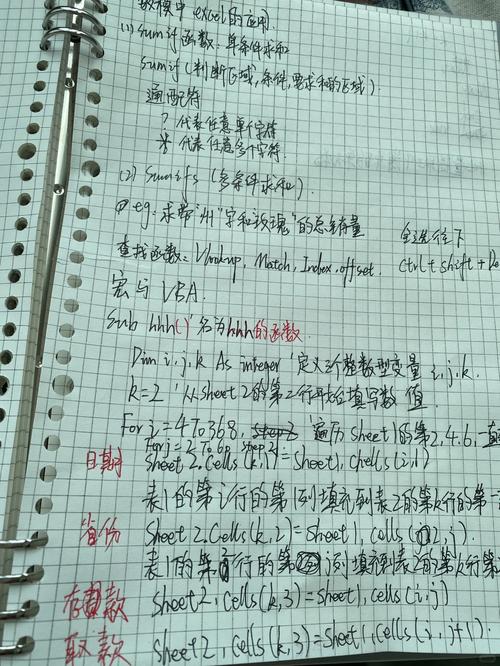 数模中excel的应用.
(1) Sumif函数：单条件求和
Sumif(判断区域,条件,要求和的区域).
通配符
? 代表任意单个字符
* 代表任意多个字符.
(2) Sumifs (多条件求和).
eg. 求带"州"字和玫瑰"的总销量
全选往下
查找函数：Vlookup, Match, Index, offset.
ctrl + shift + Do
宏与VBA.
Sub hhh() '名为hhh的函数.
Dim i, j, k As integer '定义3个整数型变量 i,j,k.
k=2 '从sheet 2的第2行开始填写数值.
For i=4 To 368, step 2 '遍历Sheet1的第2,4,6,直
For j=2 To 68 step 2
日期 Sheet 2. Cells (k, 1) = Sheet1, Chells (i, 1)
表1的第i行的第1列填充到表2的第k行的第一
省份 Sheet 2. Cells (k, 2) = Sheet 1, cells (2, j).
表1的第行的第列填充到表2的第k行第
存款 Sheet2, cells (k, 3) = Sheet 1, cells (i, j)
取款 Sheet2, cells (k, 3) = Sheet1, cells (i, j+1).